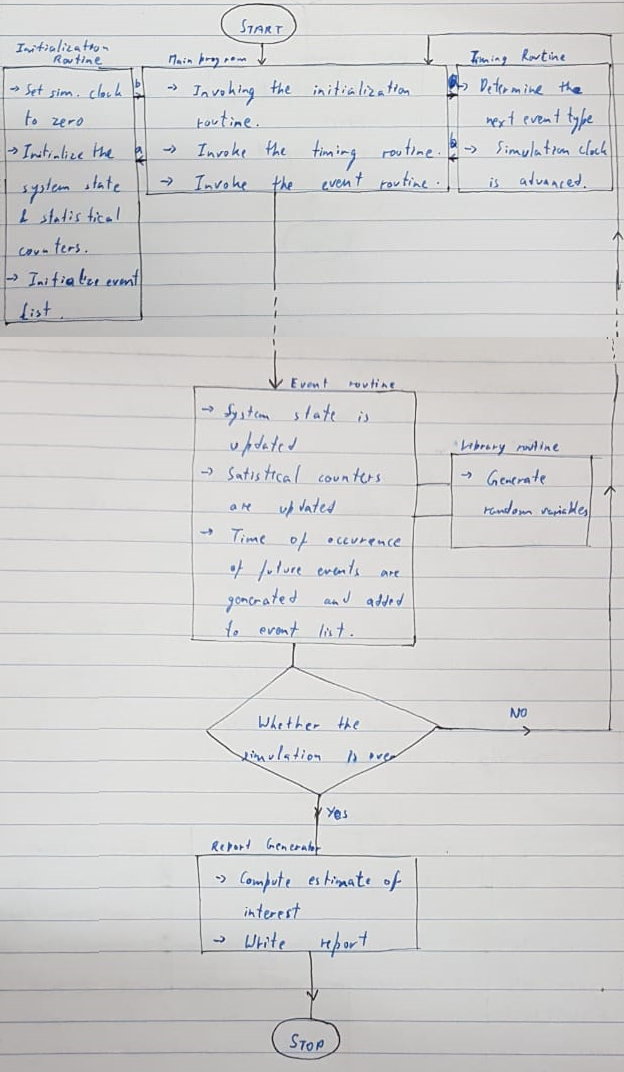 START
Initialization
Routine
→ Set sim. clock
to zero
→ Initialize the
system state
& statistical
counters.
→ Initialize event
list.
b
a
Main program
→ Invoking the initialization
routine.
→ Invoke the timing routine.
→ Invoke the event routine.
a
b
Timing Routine
→ Determine the
next event type
→ Simulation clock
is advanced.
Event routine
→ System state is
updated
→ Satistical counters
are updated
→ Time of occurence
of future events are
generated and added
to event list.
Library routine
→ Generate
random variables
Whether the
simulation is over
NO
Yes
Report Generator
→ Compute estimate of
interest
→ Write report
STOP